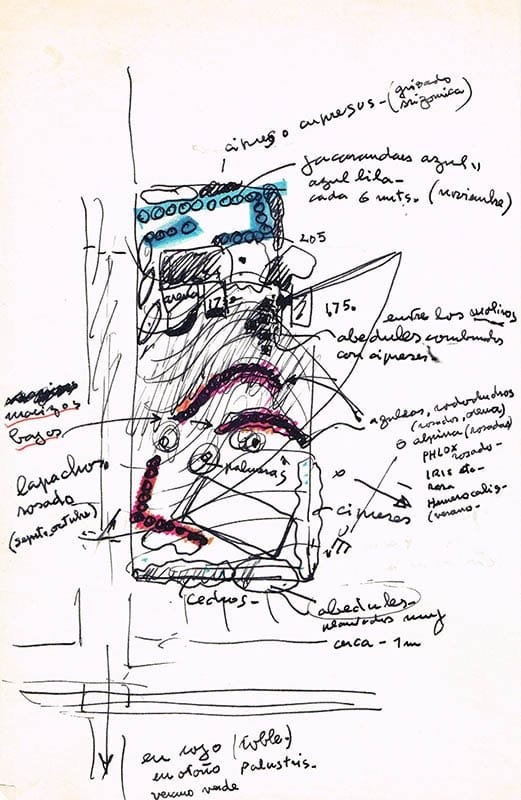 (grisado
arizonica)
cipres o cupresus -
Jacarandaes azul,,
azul lila -
cada 6 mts. (noviembre)
205
175.
entre los molinos
abedules combinados
con cipreses
macizos
bajos
azaleas, rododendros
(rosados,
o alpina (rosadas)
PHLOX
rosado -
IRIS
rosa
Hemerocalis -
(verano -
lapachos
rosado
(septi, octubre)
palmeras
cipreses
cedros -
abedules -
plantados muy
cerca - 1 m
en rojo (roble -)
en otoño palustris -
verano verde